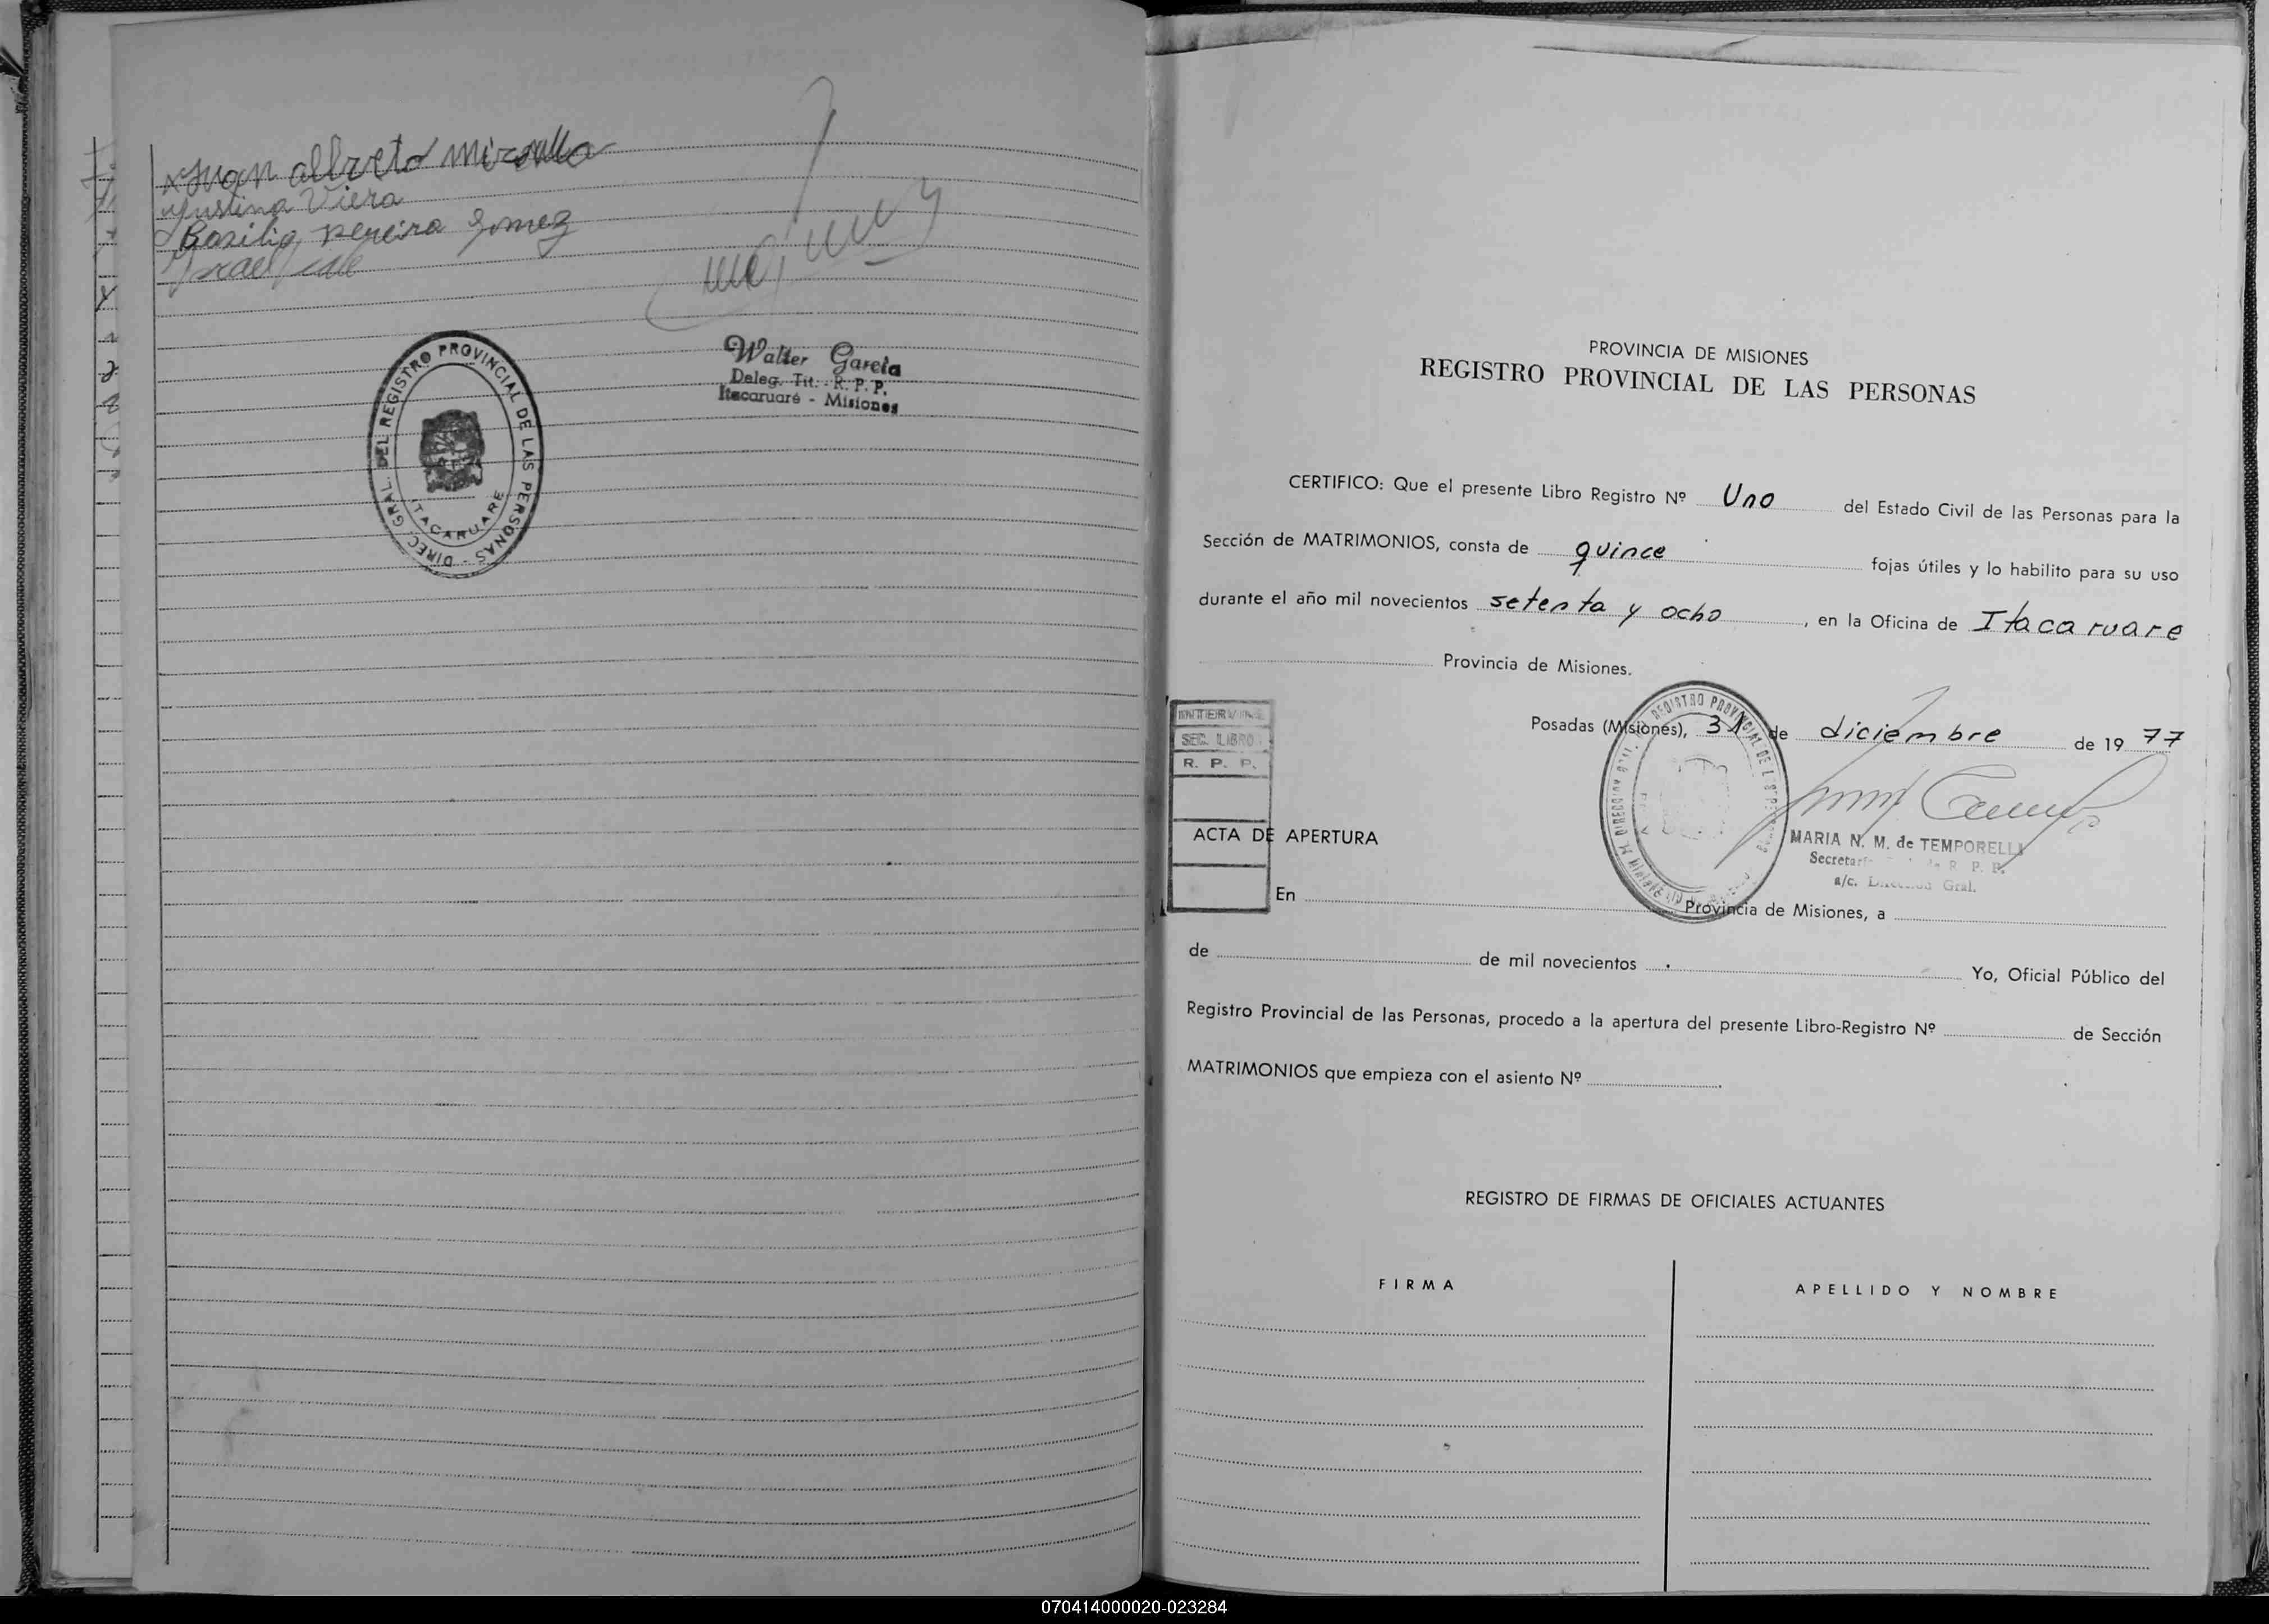 Juan alberto
Justina Viera
Basilio pereira gomez
Israel
DIREC. GRAL. DEL REGISTRO PROVINCIAL DE LAS PERSONAS -
ITACARUARE
Walter García
Deleg. Tit. - R. P. P.
Itacaruaré - Misiones
PROVINCIA DE MISIONES
REGISTRO PROVINCIAL DE LAS PERSONAS
CERTIFICO: Que el presente Libro Registro Nº Uno del Estado Civil de las Personas para la
Sección de MATRIMONIOS, consta de quince fojas útiles y lo habilito para su uso
durante el año mil novecientos setenta y ocho, en la Oficina de Itacaruare
Provincia de Misiones.
Posadas (Misiones), 31 de diciembre de 19 77
INTERVINO
SEC. LIBRO
R. P. P.
REGISTRO PROVINCIAL DE LAS PERSONAS
MARIA N. M. de TEMPORELLI
R. P. P.
a/c. Dirección Gral.
ACTA DE APERTURA
En Provincia de Misiones, a
de de mil novecientos Yo, Oficial Público del
Registro Provincial de las Personas, procedo a la apertura del presente Libro-Registro Nº de Sección
MATRIMONIOS que empieza con el asiento Nº .
REGISTRO DE FIRMAS DE OFICIALES ACTUANTES
FIRMA
APELLIDO Y NOMBRE
070414000020-023284